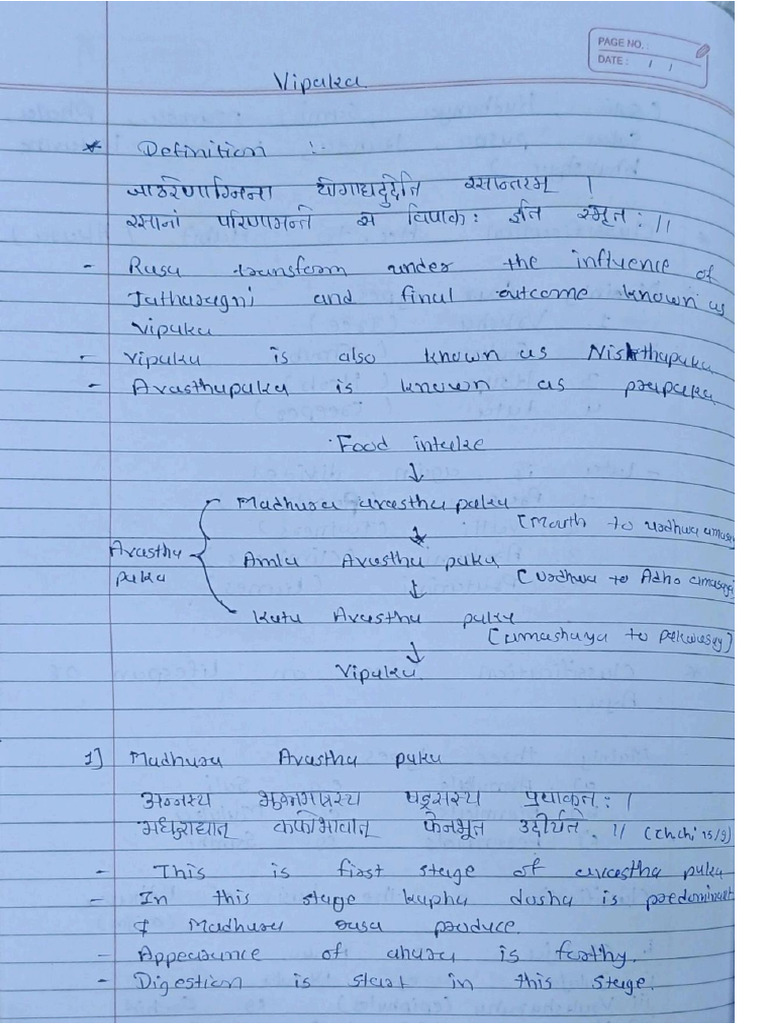 PAGE NO. :
DATE : / /
Vipaka
* Definition :-
जाठरेणाग्निना योगाद्यदुदेति रसान्तरम् ।
रसानां परिणामन्ते स विपाक: इति स्मृत: ।।
- Rasa transform under the influence of
Jatharagni and final outcome known as
Vipaka
- Vipaka is also known as Nisthapaka
- Avasthapaka is known as prapaka
Food intake
↓
Madhura avastha paka
[Mouth to urdhwa amasay
↓
Avastha
paka
Amla Avastha paka
[Urdhwa to Adho amasay]
↓
Katu Avastha paka
[amashaya to pakwasay]
↓
Vipaka
1] Madhura Avastha paka
अन्नस्य भुक्तमात्रस्य षड्रसस्य प्रपाकत: ।
मधुराद्यात् कफोभावात् फेनभूत उदीर्यते. ।। (Ch.chi 15/9)
- This is first stage of avastha paka
- In this stage kapha dosha is predominant
& Madhura rasa produce.
- Appearance of ahara is forthy.
- Digestion is start in this stage.